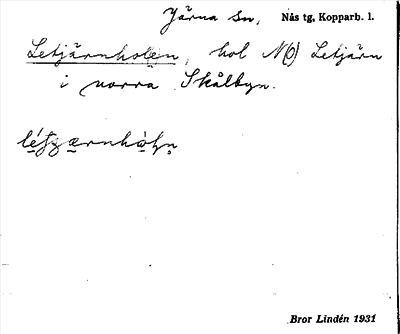 Järna Sn, Nås tg, Kopparb. l.
Letjärnholen, hol N(o) Letjärn
i norra Skålbyn.
Bror Lindén 1931